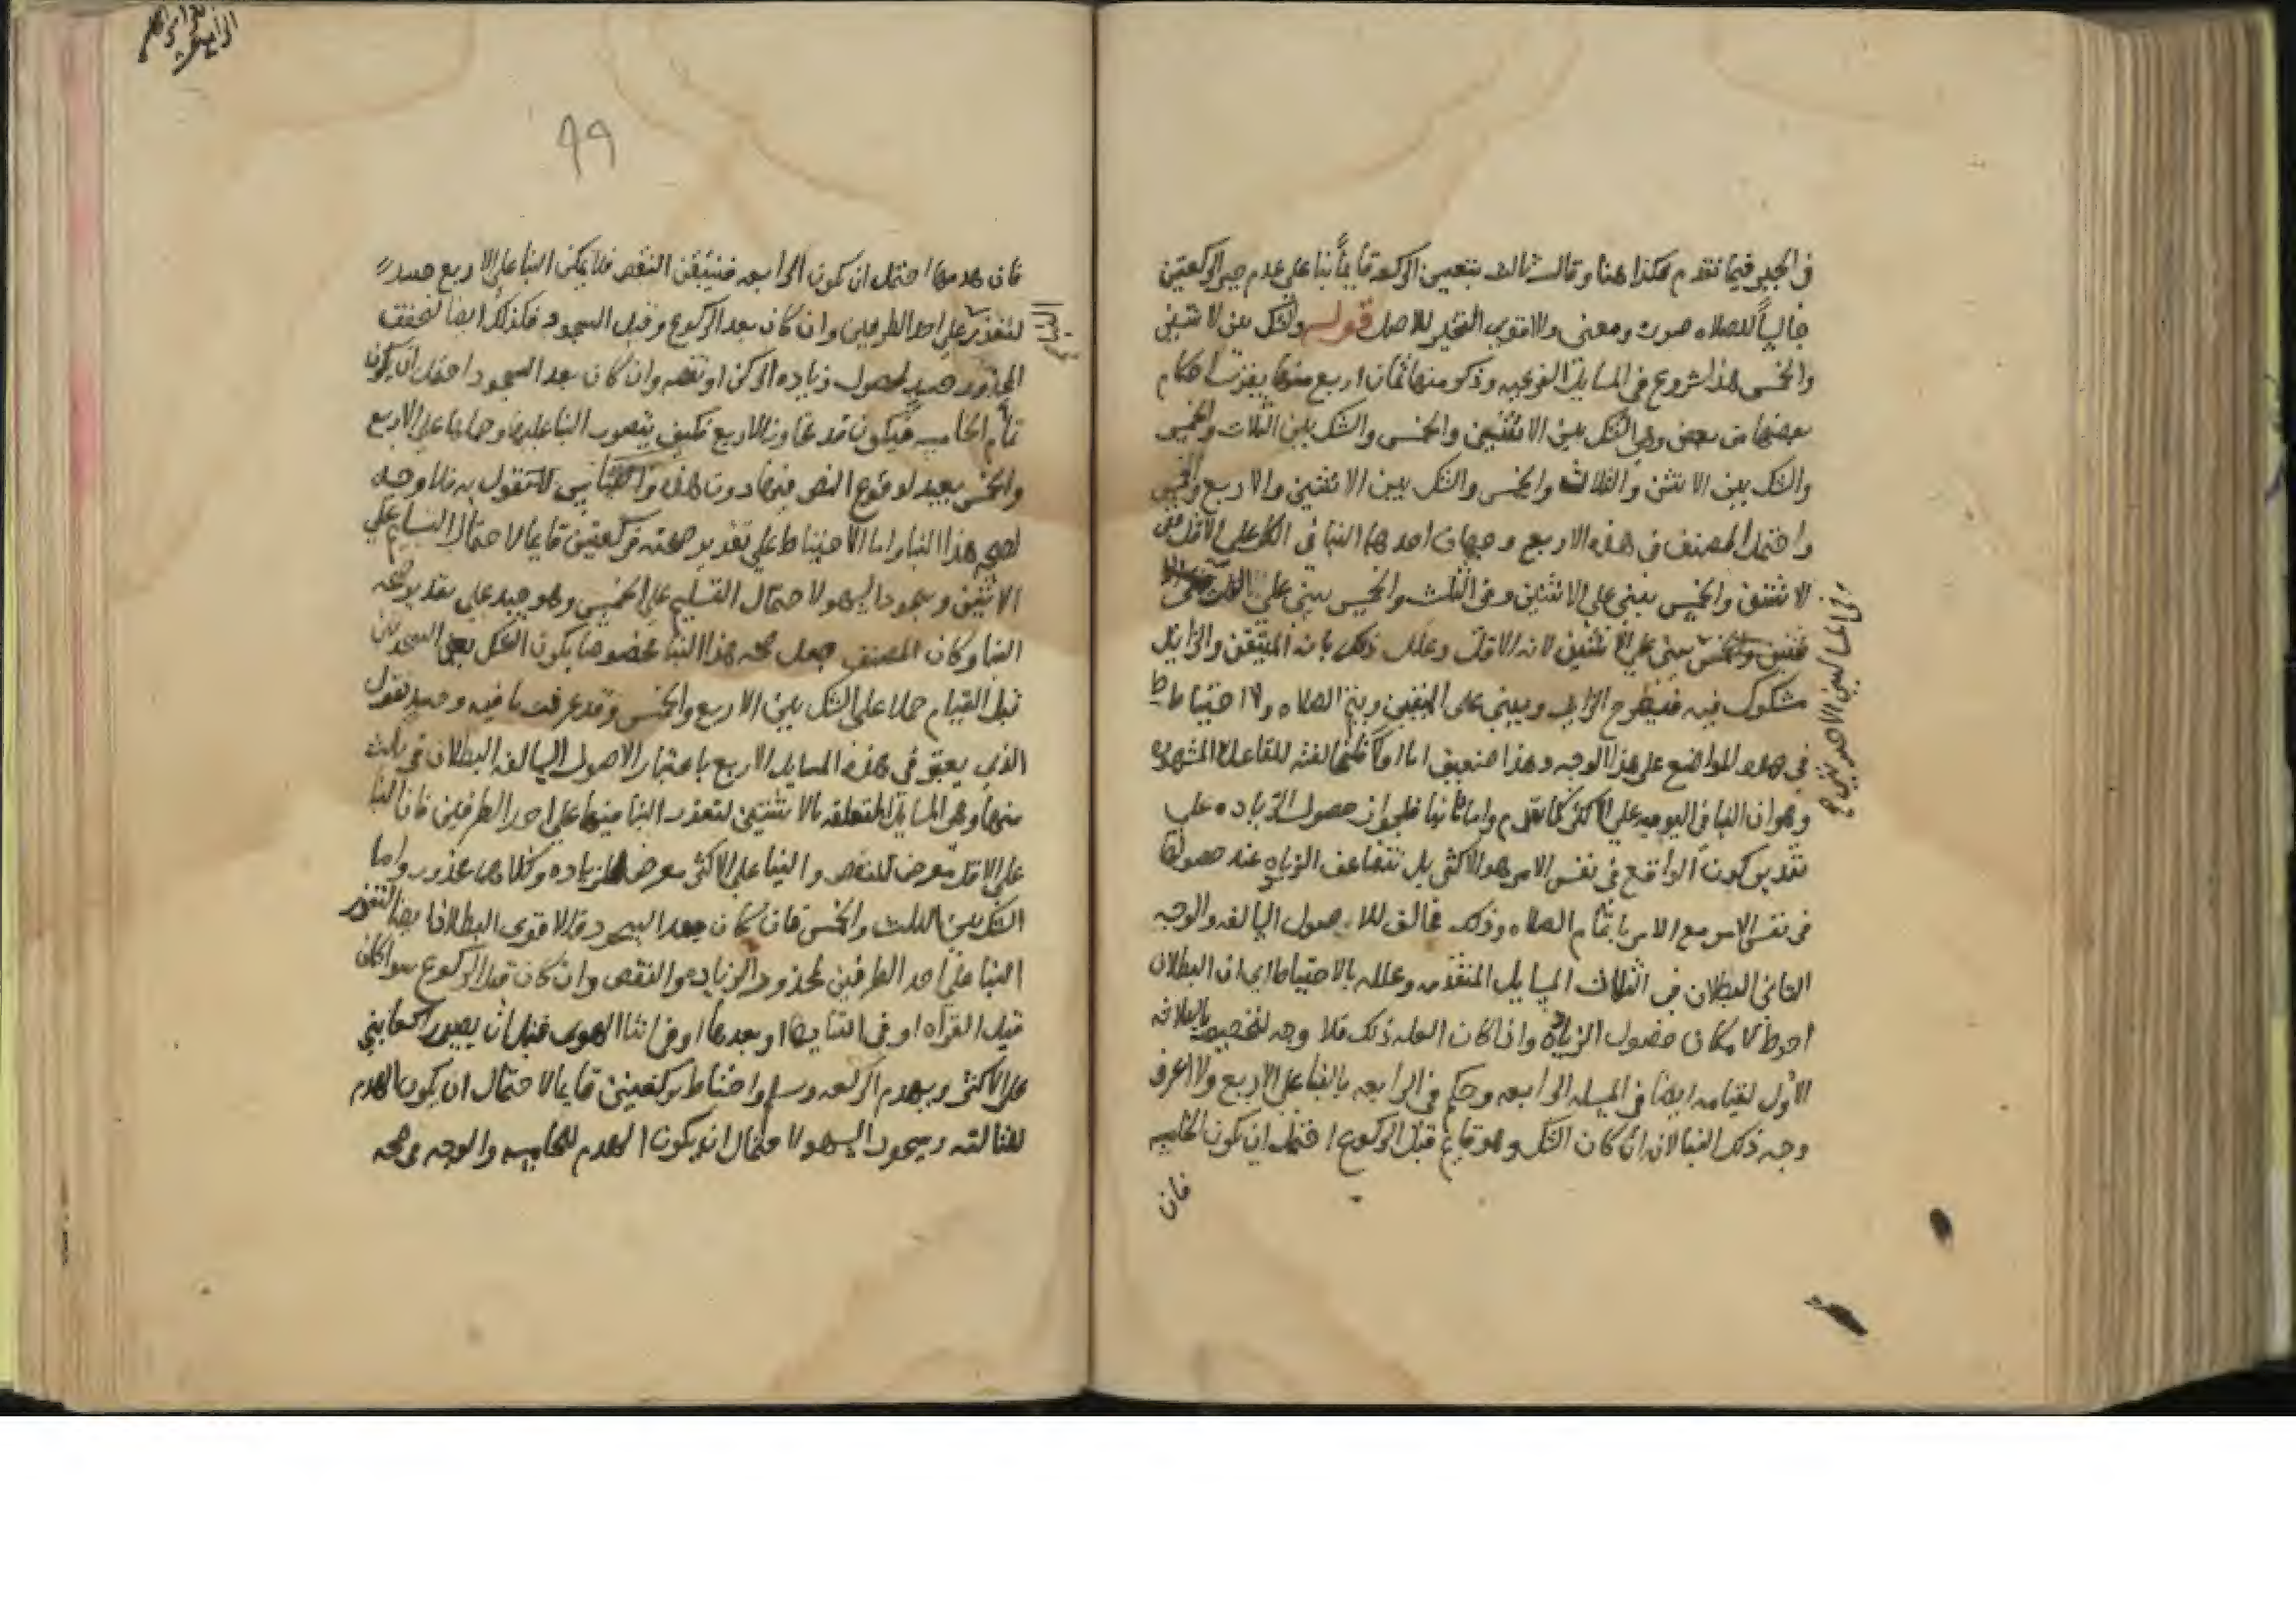 في الجبر فيما تقدم فكذا هنا وقال ثالث بتعيين الركعه قايماً بنا على عدم جبر الركعتين
جالساً للصلاه صورة ومعنى والاقوى التخير للاصل قوله والشك بين الاثنتين
والخمس هذا شروع في المسايل الفرعيه وذكر منها ثمان اربع منها يقرب احكام
بعضها من بعض وهي الشك بين الاثنتين والخمس والشك بين الثلاث والخمس
والشك بين الاثنتين والثلاث والخمس والشك بين الاثنتين والاربع والخمس
واحتمل المصنف في هذه الاربع وجهان احدهما البنا في الكل على الاقل ففي
الاثنتين والخمس يبني على الاثنتين وفي الثلث والخمس يبني على الثلث
يبني على الاثنتين لانه الاقل وعلل ذلك بانه المتيقن والزايد
مشكوك فيه فيطرح الزايد ويبني على المتيقن ويتم الصلاه ولا احتياط
في هذه المواضع على هذا الوجه وهذا ضعيف اما اولاً فلمخالفته للقاعدة المشهوره
وهو ان البنا في اليوميه على الاكثر كما تقدم واما ثانيا فلجواز حصول الزياده على
تقدير كون الواقع في نفس الامر هو الاكثر بل تتضاعف الزياده عند حصولها
في نفس الامر مع الامر باتمام الصلاه وذلك مخالف للاصول السالفه والوجه
الثاني البطلان في الثلاث المسايل المتقدمه وعلله بالاحتياط اي ان البطلان
احوط لامكان حصول الزياده واذا كان العله ذلك فلا وجه لتخصيصه بالثلاثه
الاول لقيامه ايضاً في المسيله الرابعه وحكم في الرابعه بالبنا على الاربع ولا اعرف
وجه ذلك البنا لانه ان كان الشك وهو قايم قبل الركوع احتمل ان يكون الخامسه
فان
في المسايل
99
فان هدمها احتمل ان يكون الرابعه فيتيقن النقص فلا يمكن البنا على الاربع حينيذ
لتعذره على احد الطرفين وان كان بعد الركوع وقبل السجود فكذلك ايضا لتحقق
المحذور حينيذ لحصول زياده الركن او نقصه وان كان بعد السجود احتمل ان يكون
تمام الخامسه فيكون قد تجاوز الاربع فكيف يتصور البنا عليها وحملها على الاربع
والخمس بعيد لوقوع النص فيها دون هذه والقياس لا تقول به فلا وجه
لصحه هذا البنا واما الاحتياط على تقدير صحته فركعتين قايما لاحتمال التسليم على
الاثنتين وسجود السهو لاحتمال التسليم على الخمس وهو جيد على تقدير صحه
البنا وكان المصنف جعل صحه هذا البنا مخصوصا بكون الشك بعد السجدتين
قبل القيام حملا على الشك بين الاربع والخمس وقد عرفت ما فيه وحينيذ نقول
الذي يقوى في هذه المسايل الاربع باعتبار الاصول السالفه البطلان في ثلث
منها وهي المسايل المتعلقه بالاثنتين لتعذر البنا فيها على احد الطرفين فان البنا
على الاقل معرض للنقص والبنا على الاكثر معرض للزياده وكلاهما محذور واما
الشك بين الثلث والخمس فان كان بعد السجود فالاقوى البطلان ايضا لتعذر
البنا على احد الطرفين لمحذور الزياده والنقص وان كان قبل الركوع سوا كان
قبل القراه او في اثنايها او بعدها او في اثنا الهوى قبل ان يصير راكعا يبني
على الاكثر ويهدم الركعه وسلم واحتاط بركعتين قايما لاحتمال ان يكون الهدم
للثالثه وسجود السهو لاحتمال ان يكون الهدم للخامسه والوجه في صحه